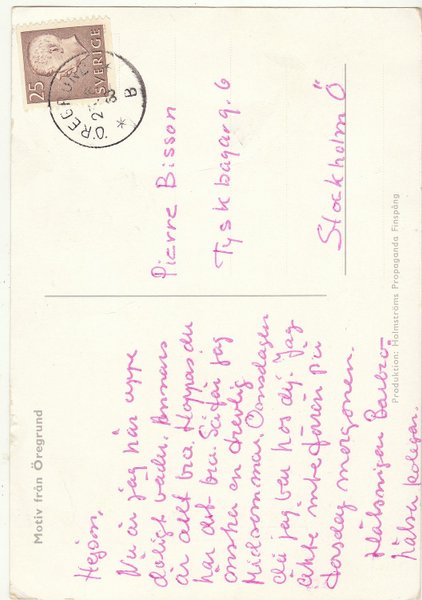 Motiv från Öregrund
Hejsan,
Nu är jag här uppe
dåligt väder. Annars
är allt bra. Hoppas du
har det bra. Så får jag
önska en trevlig
Midsommar. Onsdagen
du jag ber hos dej. Jag
åkte inte förrän på
torsdag morgonen.
Hälsningar Barbro
hälsa kolegan.
25
SVERIGE
ÖREGRUND
B
Pierre Bisson
Tyskbagarg. 6
Stockholm Ö
Produktion: Holmströms Propaganda Finspång